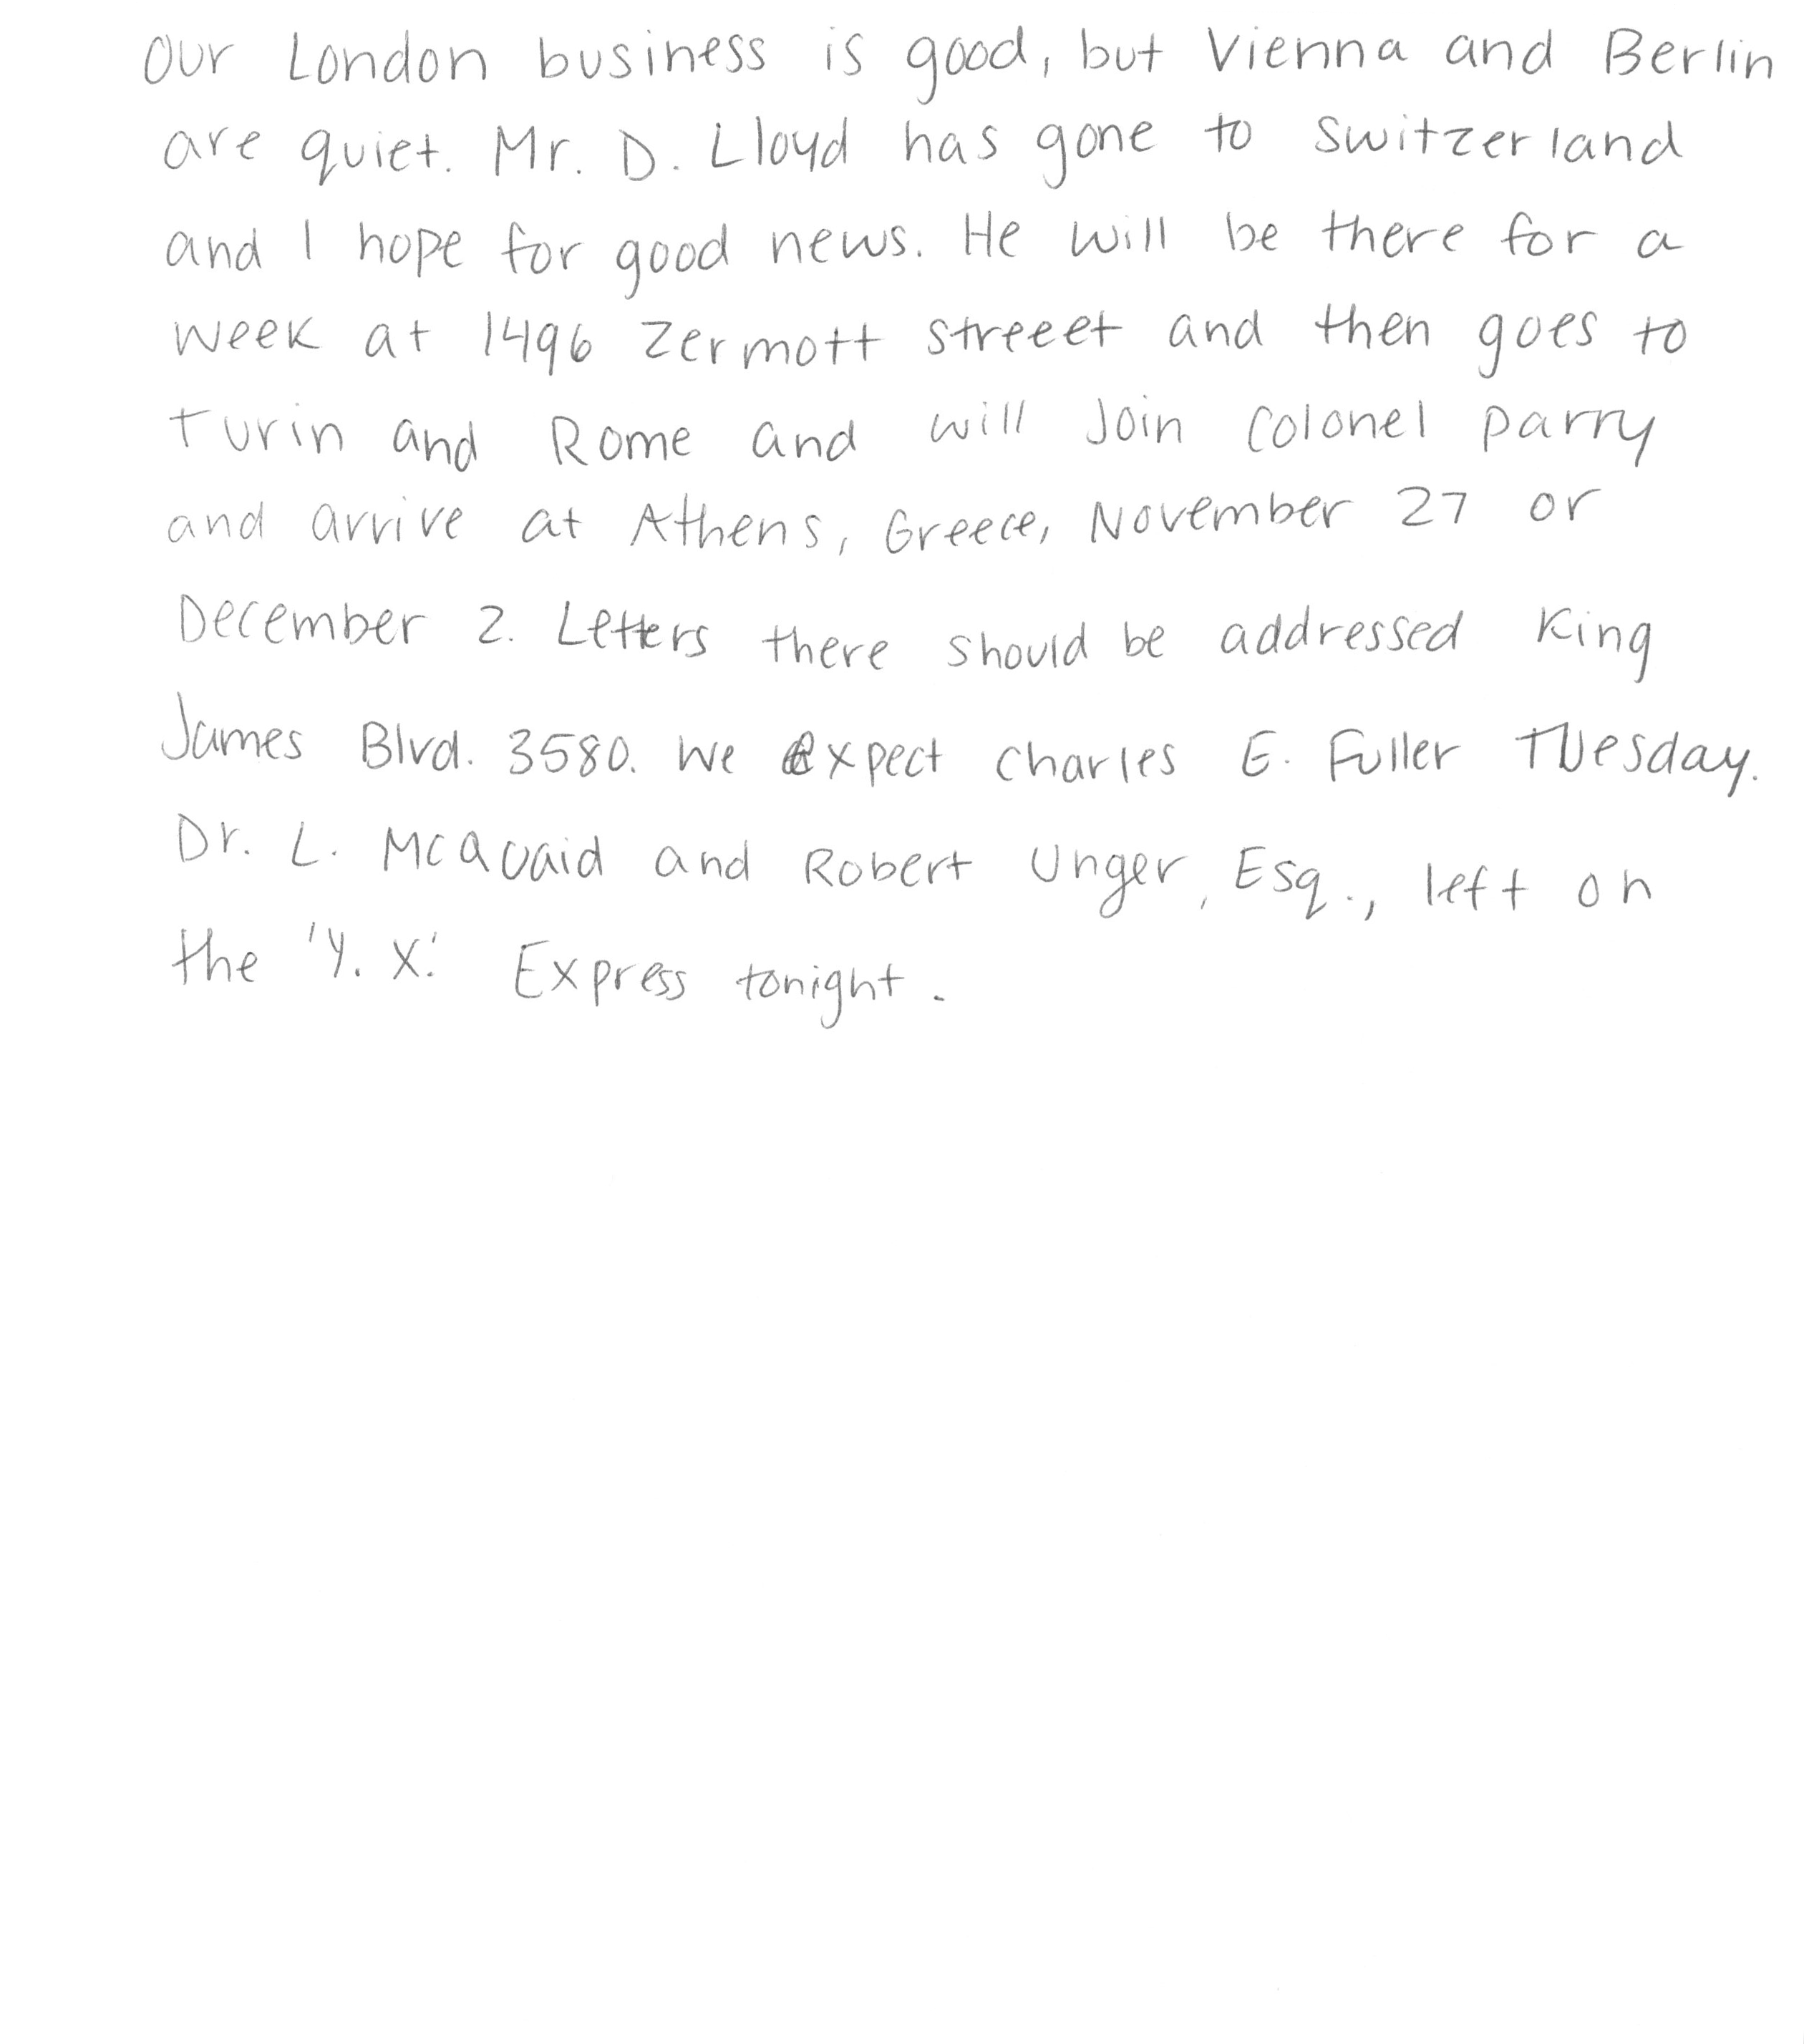 Our London business is good, but Vienna and Berlin
are quiet. Mr. D. Lloyd has gone to Switzerland
and I hope for good news. He will be there for a
week at 1496 Zermott streeet and then goes to
Turin and Rome and will Join Colonel Parry
and arrive at Athens, Greece, November 27 or
December 2. Letters there should be addressed King
James Blvd. 3580. We expect Charles E. Fuller Tuesday.
Dr. L. McQuaid and Robert Unger, Esq., left on
the 'Y. X.' Express tonight.